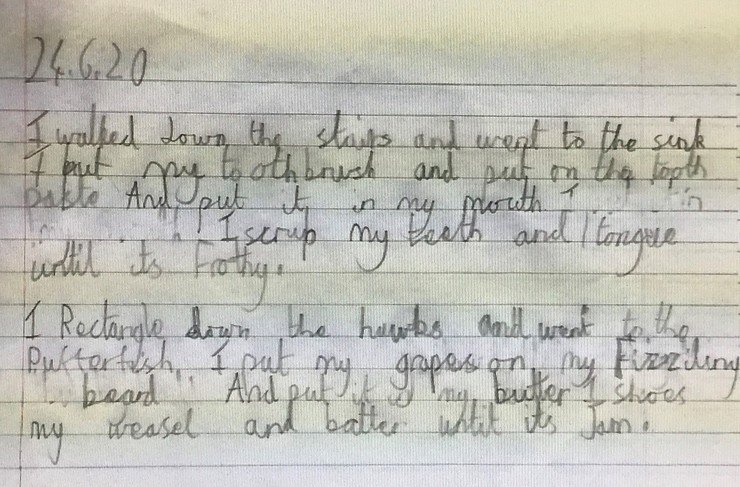 24.6.20
I walked down the stairs and went to the sink
I put my toothbrush and put on the tooth
paste And put it in my mouth I in
I scrup my teeth and tongue
until its Frothy.
I Rectangle down the hawks and went to the
Pufferfish. I put my grapes on my Fizziling
beard And put it my butter I shoes
my weasel and batter until its Jam.